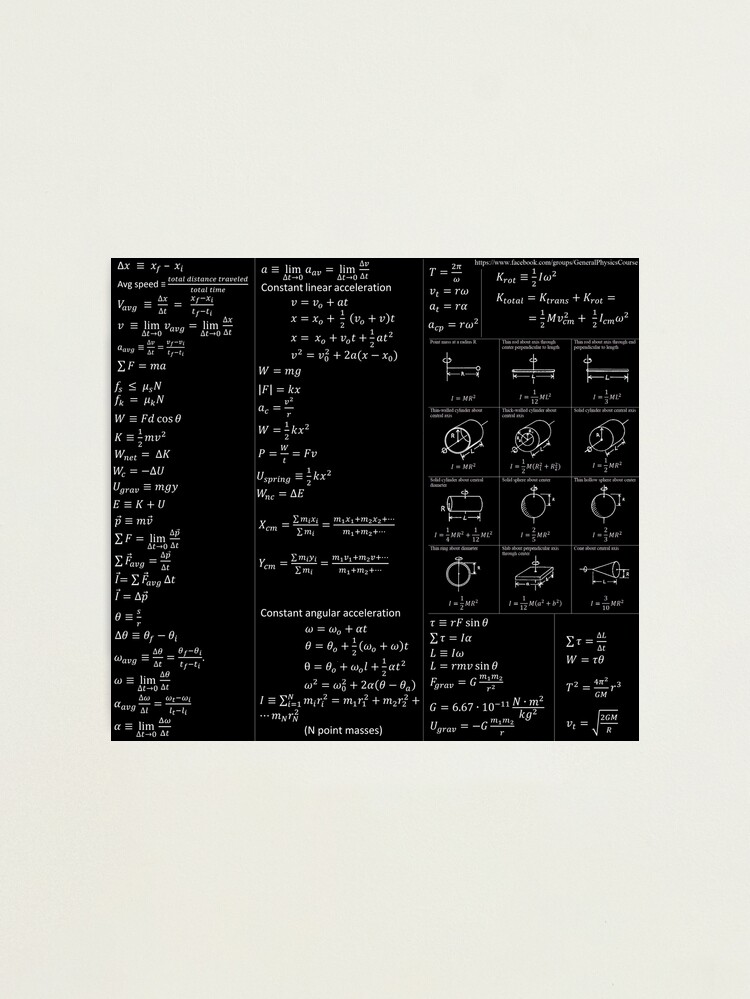 Δx ≡ x_f − x_i
Avg speed ≡ total distance traveled / total time
V_avg ≡ Δx/Δt = (x_f−x_i)/(t_f−t_i)
v ≡ lim_{Δt→0} v_avg = lim_{Δt→0} Δx/Δt
a_avg ≡ Δv/Δt = (v_f−v_i)/(t_f−t_i)
∑F = ma
f_s ≤ μ_sN
f_k = μ_kN
W ≡ Fd cos θ
K ≡ 1/2 mv²
W_net = ΔK
W_c = −ΔU
U_grav ≡ mgy
E ≡ K + U
p⃗ ≡ mv⃗
∑F = lim_{Δt→0} Δp⃗/Δt
∑F⃗_avg = Δp⃗/Δt
I⃗ = ∑F⃗_avg Δt
I⃗ = Δp⃗
θ ≡ s/r
Δθ ≡ θ_f − θ_i
ω_avg ≡ Δθ/Δt = (θ_f−θ_i)/(t_f−t_i).
ω ≡ lim_{Δt→0} Δθ/Δt
α_avg Δω/Δl = (ω_t−ω_i)/(l_t−l_i)
α ≡ lim_{Δt→0} Δω/Δt
a ≡ lim_{Δt→0} a_av = lim_{Δt→0} Δv/Δt
Constant linear acceleration
v = v_o + at
x = x_o + 1/2 (v_o + v)t
x = x_o + v_ot + 1/2 at²
v² = v_0² + 2a(x − x_0)
W = mg
|F| = kx
a_c = v²/r
W = 1/2 kx²
P = W/t = Fv
U_spring ≡ 1/2 kx²
W_nc = ΔE
X_cm = ∑m_ix_i/∑m_i = (m_1x_1+m_2x_2+⋯)/(m_1+m_2+⋯)
Y_cm = ∑m_iy_i/∑m_i = (m_1v_1+m_2v+⋯)/(m_1+m_2+⋯)
Constant angular acceleration
ω = ω_o + αt
θ = θ_o + 1/2 (ω_o + ω)t
θ = θ_o + ω_ol + 1/2 αt²
ω² = ω_0² + 2α(θ − θ_a)
I ≡ ∑_{i=1}^{N} m_ir_i² = m_1r_1² + m_2r_2² +
⋯ m_Nr_N²
(N point masses)
https://www.facebook.com/groups/GeneralPhysicsCourse
T = 2π/ω
v_t = rω
a_t = rα
a_cp = rω²
K_rot ≡ 1/2 Iω²
K_total = K_trans + K_rot =
= 1/2 Mv_cm² + 1/2 I_cmω²
Point mass at a radius R
R
I = MR²
Thin rod about axis through
center perpendicular to length
L
I = 1/12 ML²
Thin rod about axis through end
perpendicular to length
L
I = 1/3 ML²
Thin-walled cylinder about
central axis
R
L
I = MR²
Thick-walled cylinder about
central axis
L
I = 1/2 M(R_1² + R_2²)
Solid cylinder about central axis
R
L
I = 1/2 MR²
Solid cylinder about central
diameter
R
L
I = 1/4 MR² + 1/12 ML²
Solid sphere about center
R
I = 2/5 MR²
Thin hollow sphere about center
R
I = 2/3 MR²
Thin ring about diameter
I = 1/2 MR²
Slab about perpendicular axis
through center
I = 1/12 M(a² + b²)
Cone about central axis
R
I = 3/10 MR²
τ ≡ rF sin θ
∑τ = Iα
L ≡ Iω
L = rmv sin θ
F_grav = G m_1m_2/r²
G = 6.67 · 10⁻¹¹ N · m²/kg²
U_grav = −G m_1m_2/r
∑τ = ΔL/Δt
W = τθ
T² = 4π²/GM r³
v_t = √(2GM/R)